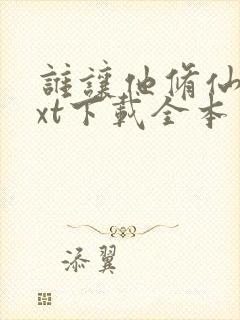 誰讓他脩仙
xt下載全本
添翼